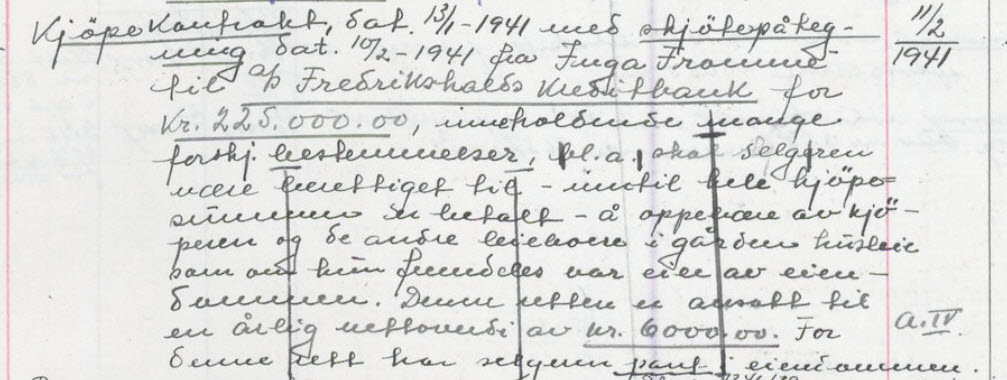 Kjöpekontrakt, dat. 13/1-1941 med skjötepåteg- 11/2
ning dat. 10/2-1941 fra Inga Fromme 1941
til a/s Fredrikshalds Kreditbank for
Kr. 225.000.00, inneholdende mange
forskj. bestemmelser, bl.a. skal selgeren
være berettiget til - inntil hele kjöpe=
summen er betalt - å oppebære av kjö-
peren og de andre leieboere i gården husleie
som om hun fremdeles var eier av eien-
dommen. Denne retten er ansatt til
en årlig nettoverdi av kr. 6000.00. For a.IV.
denne rett har selgeren pant i eiendommen.